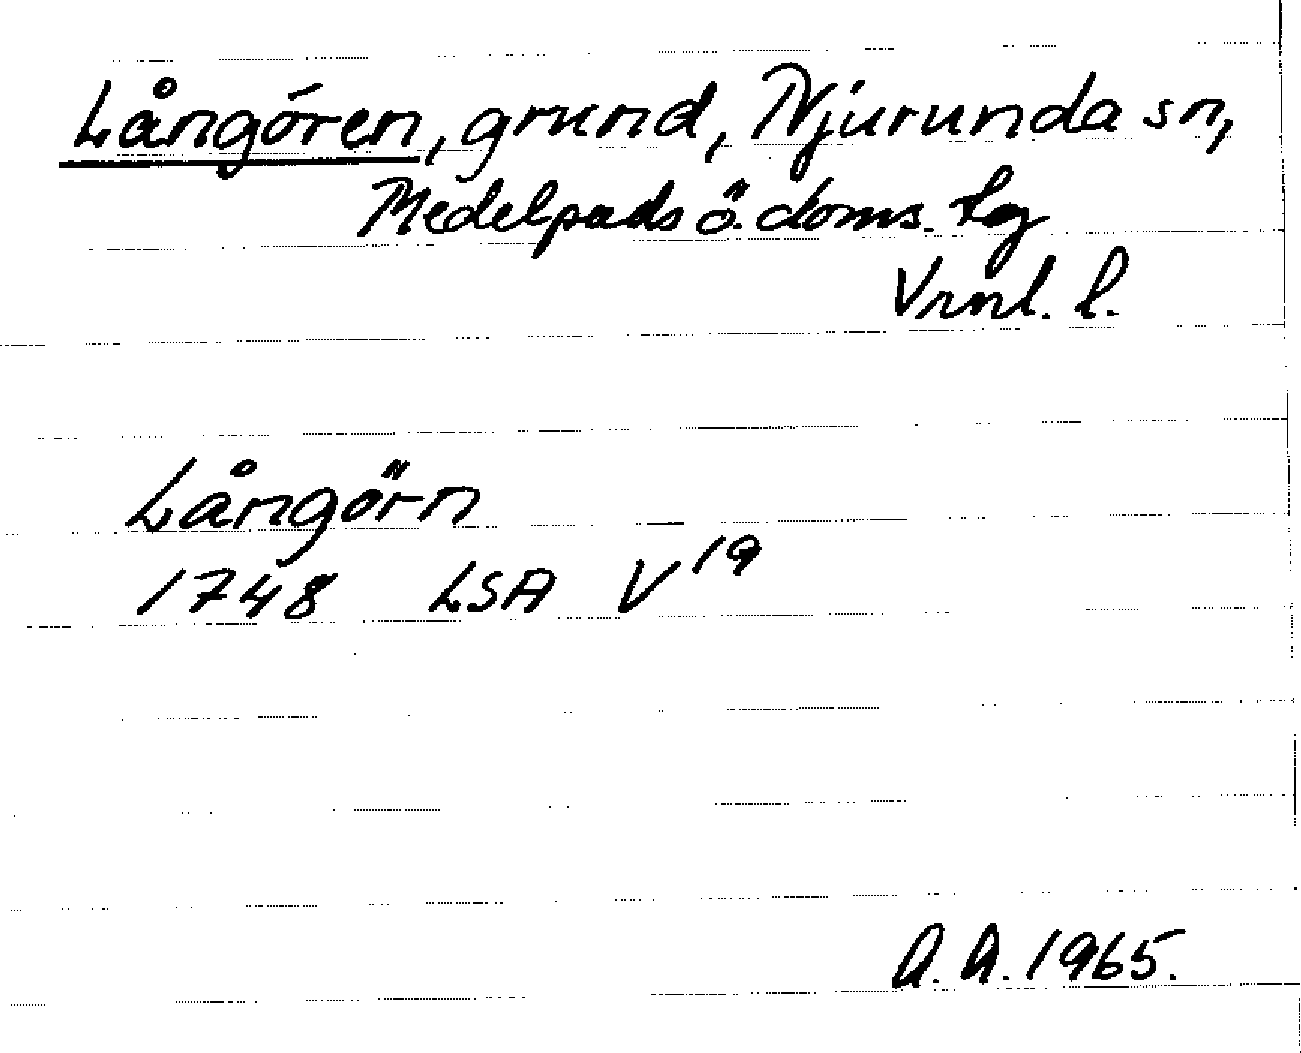 Långören, grund, Njurunda sn,
Medelpads ö. doms. tg
Vrnl. l.
Långörn
1748 LSA V¹⁹
A. A. 1965.